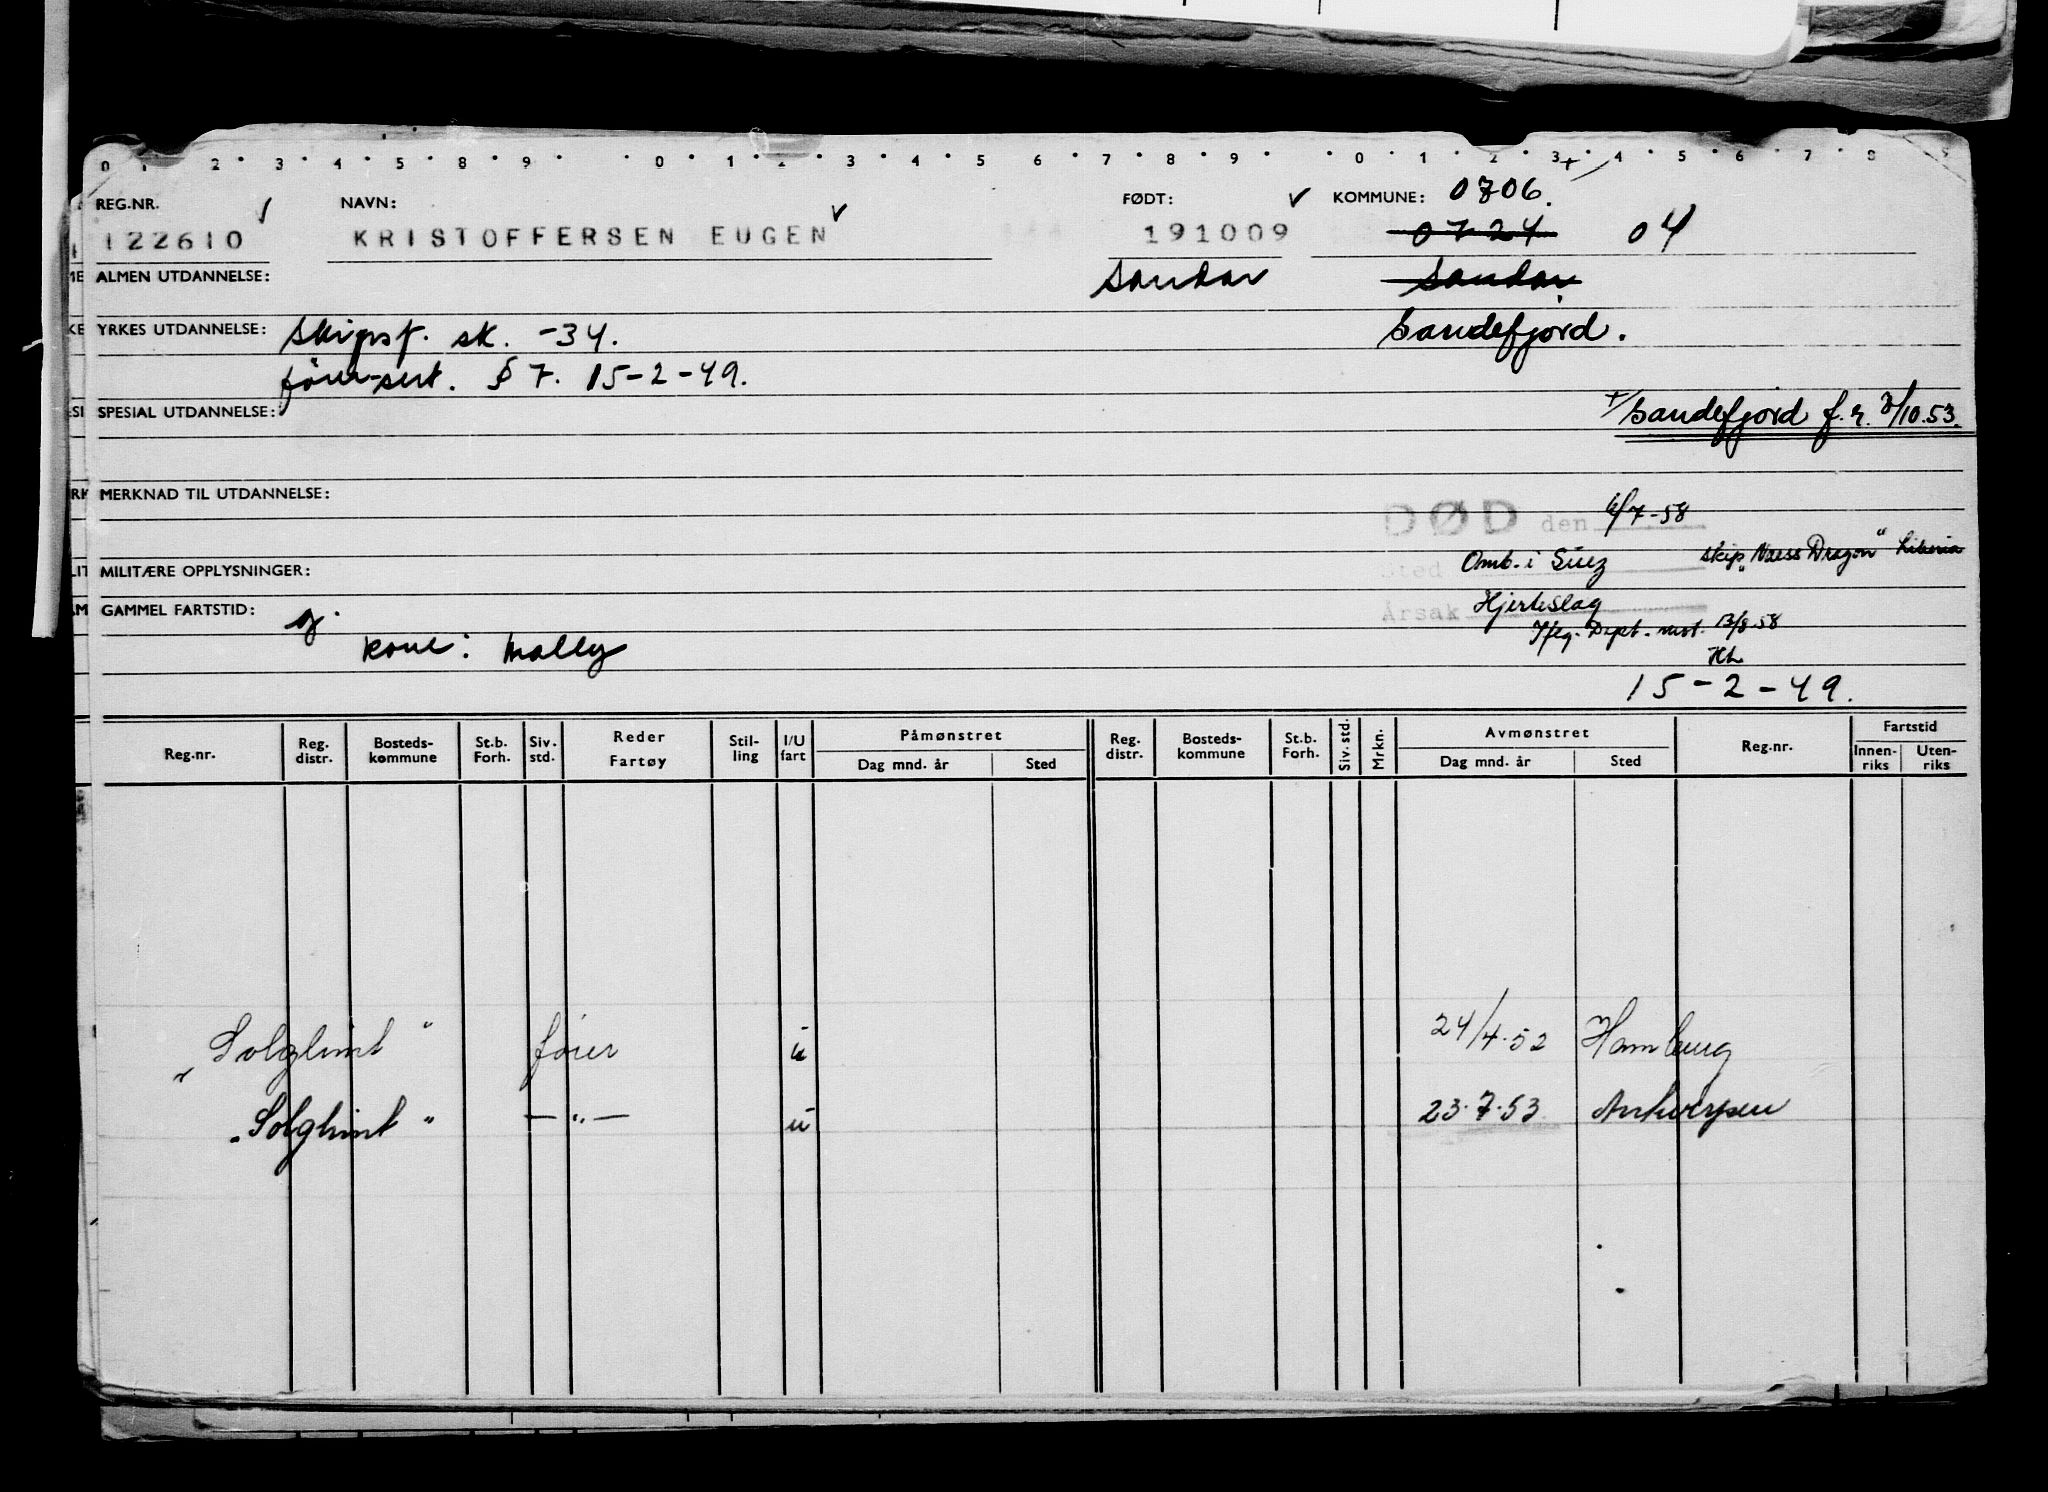 0 1 2 3 4 5 8 9 0 1 2 3 4 5 6 7 8 9 0 1 2 3 4 5 6 7 8 9
REG.NR. NAVN: FØDT: KOMMUNE: 0706.
122610 KRISTOFFERSEN EUGEN 191009 0724 04
ALMEN UTDANNELSE: Sandar Sandar
YRKES UTDANNELSE: Skipsf. sk. -34. Sandefjord.
fører-sert. § 7. 15-2-49.
SPESIAL UTDANNELSE: +/ Sandefjord f. r. 3/10.53.
MERKNAD TIL UTDANNELSE:
DØD den 6/7-58
MILITÆRE OPPLYSNINGER: Sted Omb. i Suez skip „Næss Dragon" Liberia
GAMMEL FARTSTID: Årsak Hjerteslag
Iflg. Dept. 13/8-58
kone: Molly HL
15-2-49.
Reg.nr. Reg. distr. Bosteds-kommune St.b. Forh. Siv. std. Reder Fartøy Stil-ling I/U fart Påmønstret Dag mnd. år Sted Reg. distr. Bosteds-kommune St.b. Forh. Siv. std. Mrkn. Avmønstret Dag mnd. år Sted Reg.nr. Fartstid Innen-riks Uten-riks
„Solglimt" fører u 24/4.52 Hamburg
„Solglimt" —"— u 23.7.53 Antwerpen